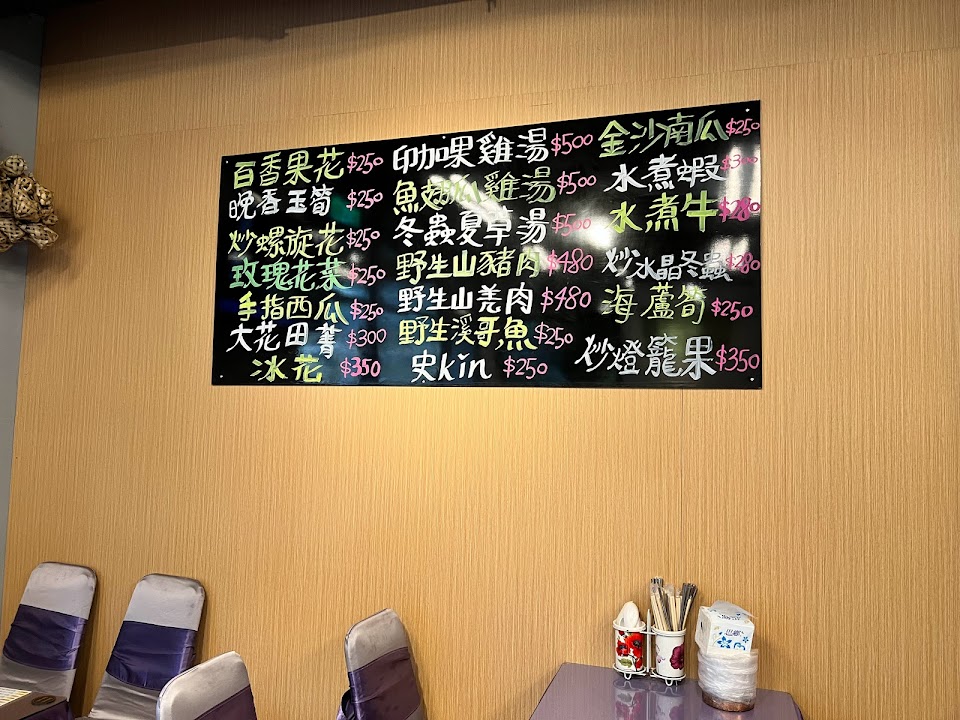 百香果花 $250
晚香玉筍 $250
炒螺旋花 $250
玫瑰花菜 $250
手指西瓜 $250
大花田菁 $300
冰花 $350
印加果雞湯 $500
魚翅瓜雞湯 $500
冬蟲夏草湯 $500
野生山豬肉 $480
野生山羌肉 $480
野生溪哥魚 $250
史kin $250
金沙南瓜 $250
水煮蝦 $300
水煮牛 $280
炒水晶冬蟲 $280
海蘆筍 $250
炒燈籠果 $350